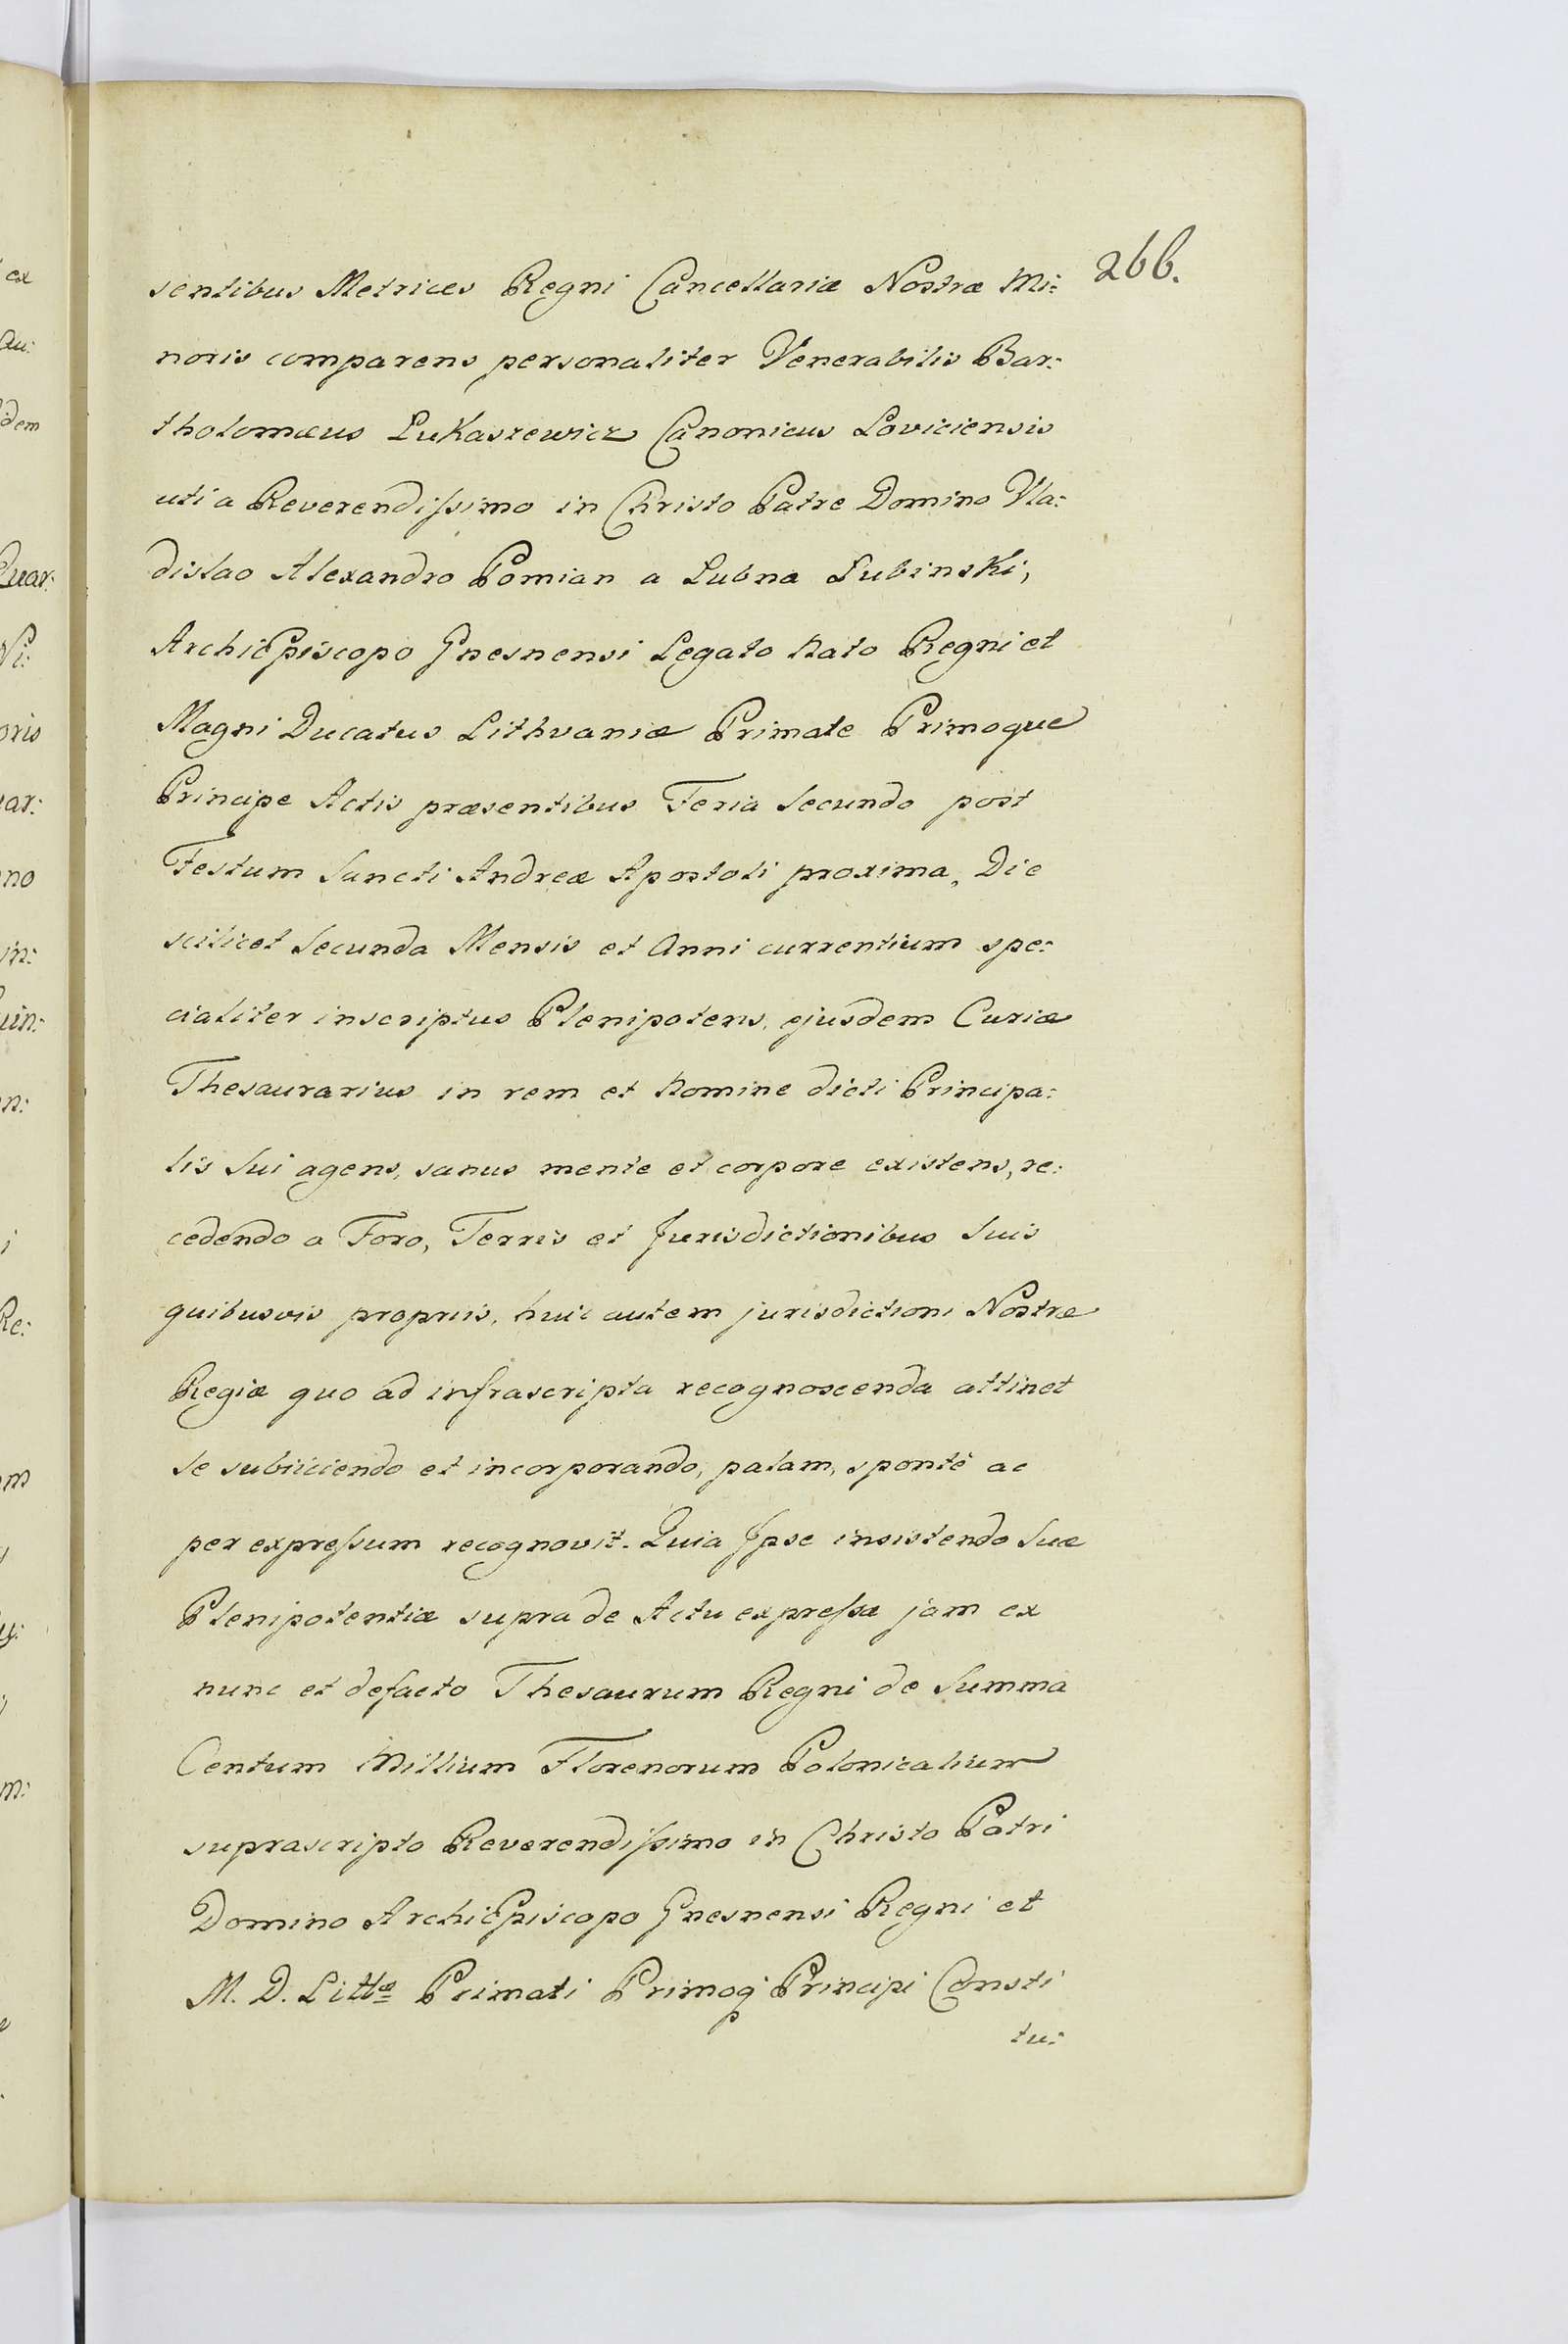 266.
sentibus Metrices Regni Cancellariæ Nostræ Mi:
noris comparens personaliter Venerabilis Bar:
tholomæus Łukaszewicz Canonicus Loviciensis
uti a Reverendiſsimo in Christo Patre Domino Vla:
dislao Alexandro Pomian a Łubna Łubinski,
ArchiEpiscopo Gnesnensi Legato Nato Regni et
Magni Ducatus Lithvaniæ Primate Primoque
Principe Actis præsentibus Feria Secundo post
Festum Sancti Andreæ Apostoli proxima, Die
scilicet Secunda Mensis et Anni currentium spe:
cialiter inscriptus Plenipotens, ejusdem Curiæ
Thesaurarius in rem et Nomine dicti Principa:
lis Sui agens, sanus mente et corpore existens, re:
cedendo a Foro, Terris et Jurisdictionibus Suis
quibusvis propriis, huic autem jurisdictioni Nostræ
Regiæ quo ad infrascripta recognoscenda attinet
Se subiiciendo et incorporando, palam, spontè ac
per expreſsum recognovit. Quia Ipse insistendo Suæ
Plenipotentiæ supra de Actu expreſsæ jam ex
nunc et defacto Thesaurum Regni de Summa
Centum Millium Florenorum Polonicalium
suprascripto Reverendiſsimo in Christo Patri
Domino ArchiEpiscopo Gnesnensi Regni et
M. D. Littæ Primati Primoq Principi Consti
tu:
ex
Au:
idem
Quar:
Ni:
oris
uar:
no
in:
uin:
n:
i
Re:
m
y:
m: